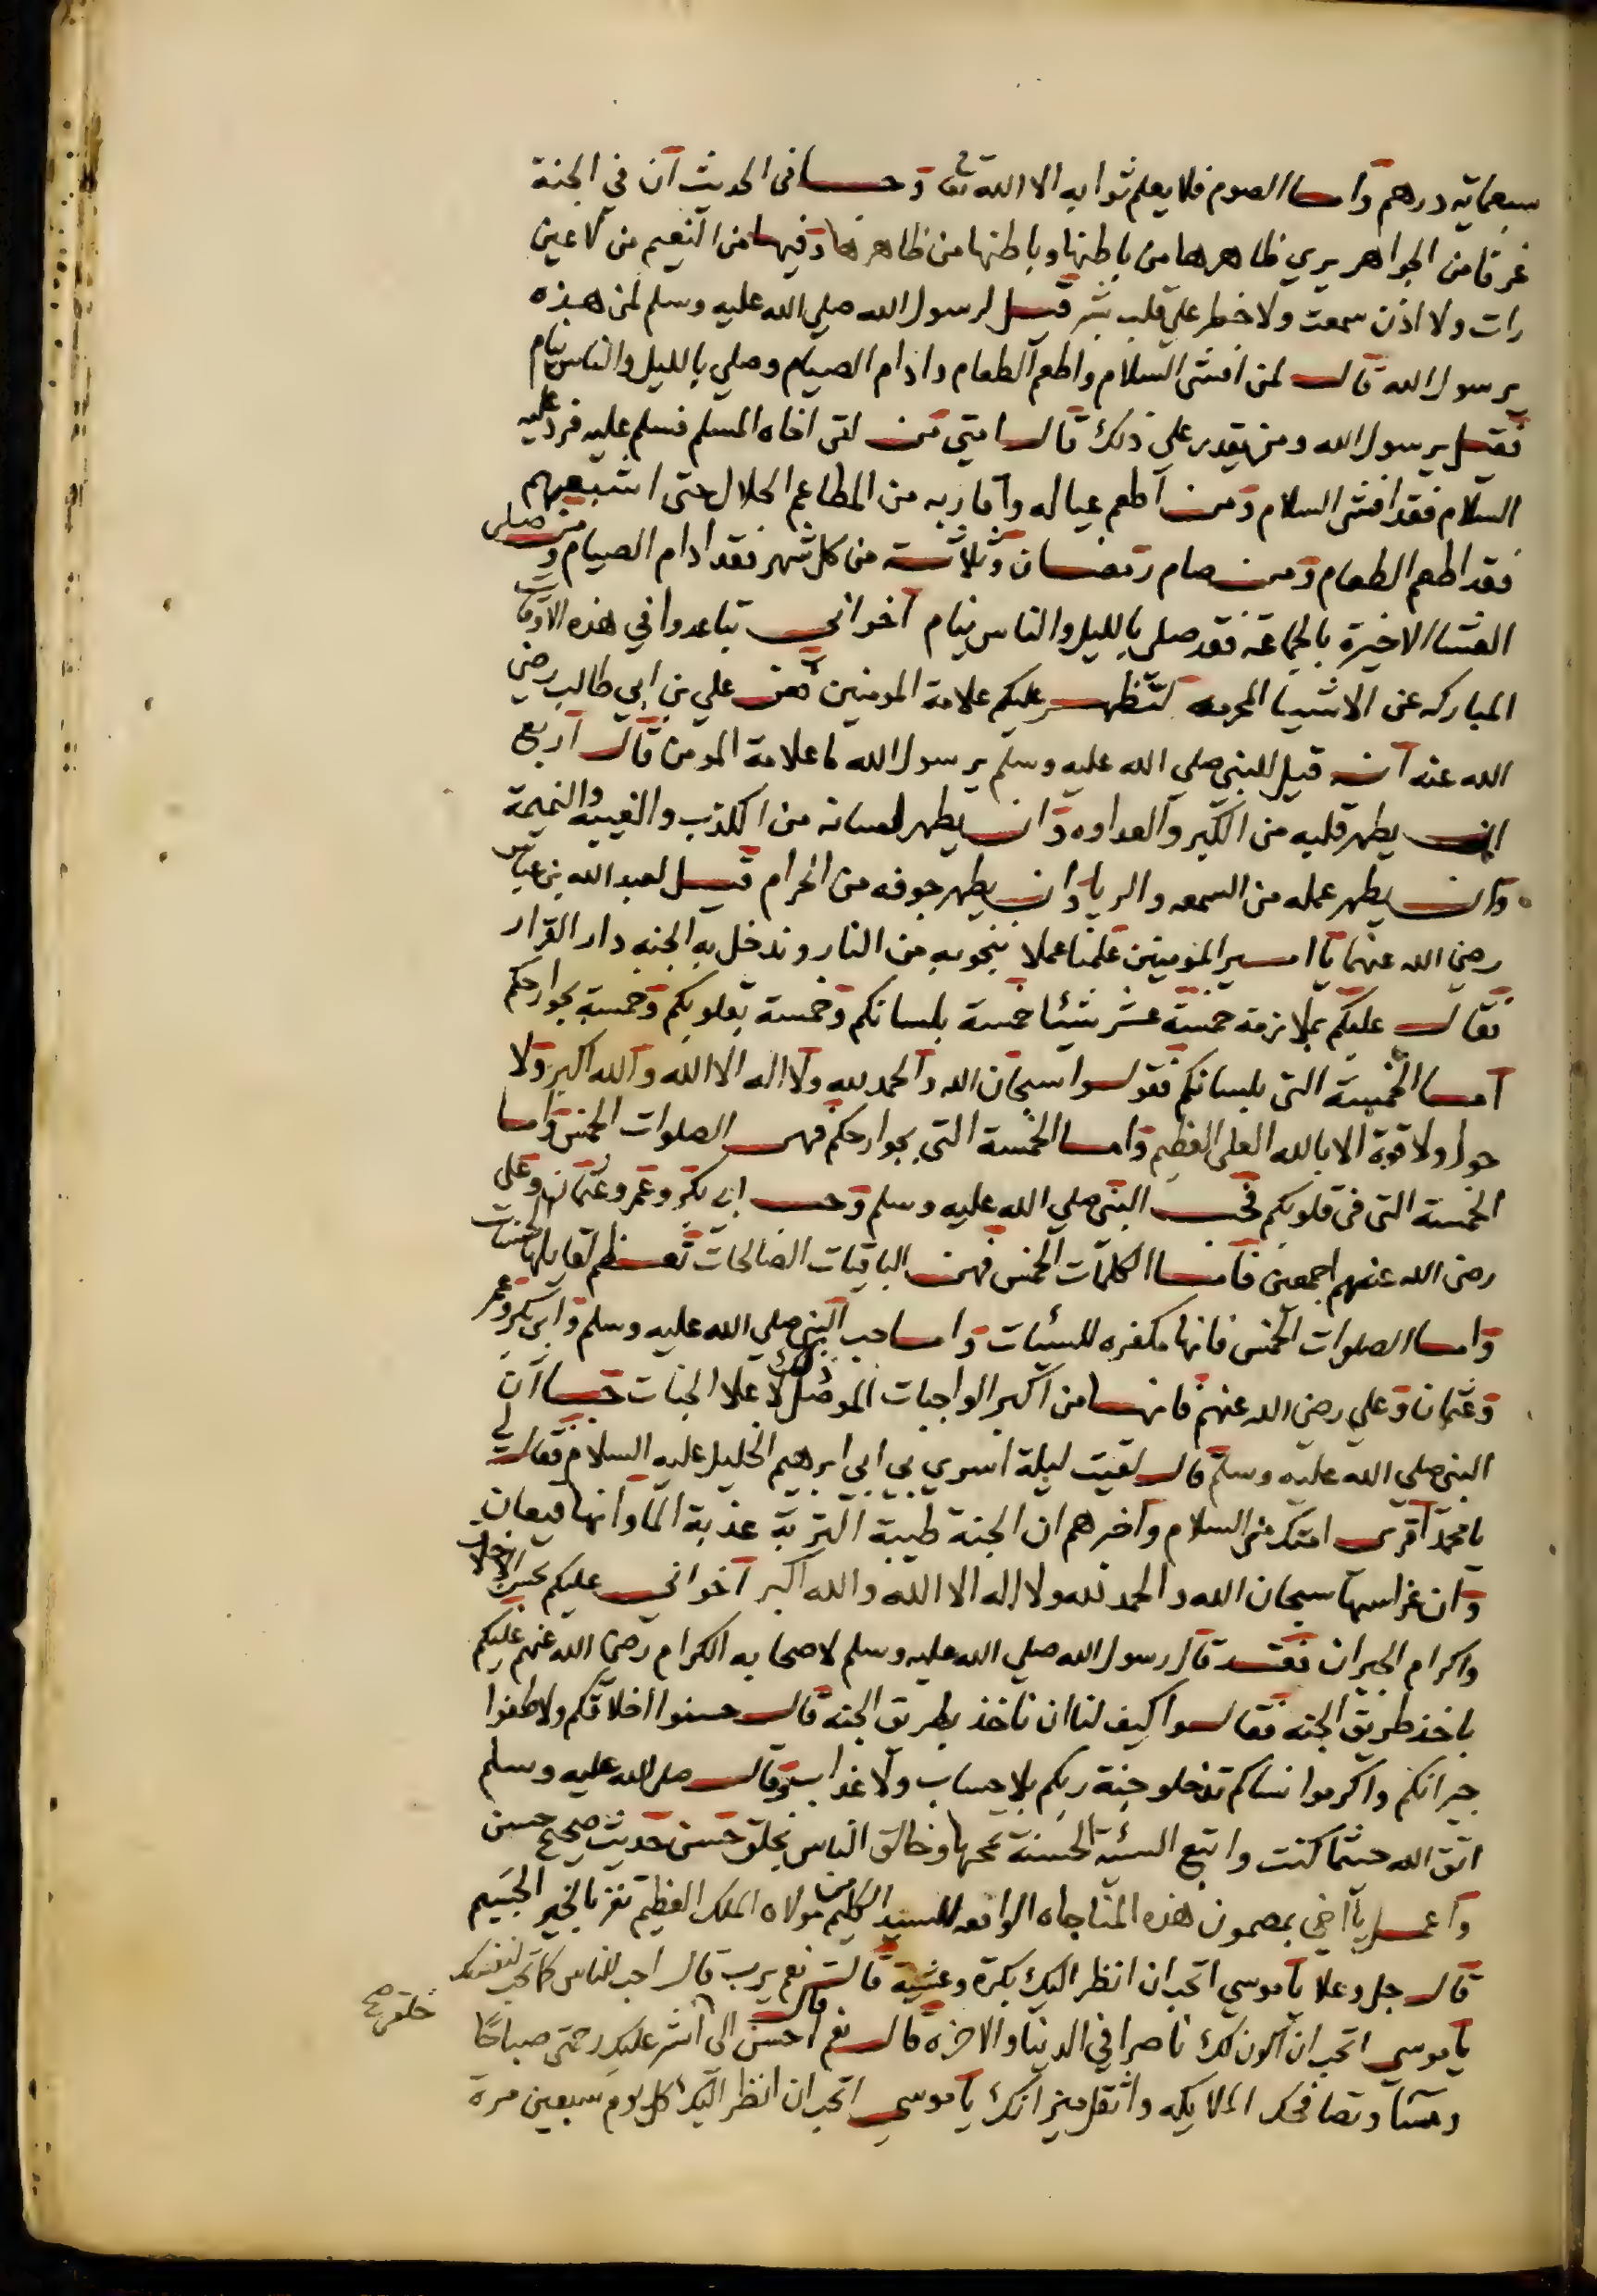 سبعمايه درهم واما الصوم فلا يعلم ثوابه الا الله تعا وجا في الحديث ان في الجنة
غرفا من الجواهر يري ظاهرها من باطنها وباطنها من ظاهرها وفيها من النعيم من لا عين
رات ولا اذن سمعت ولا خطر على قلب بشر قيل لرسول الله صلي الله عليه وسلم لمن هذه
يرسول الله قال لمن افشي السلام واطعم الطعام وادام الصيام وصلي بالليل والناس نيام
فقيل يرسول الله ومن يقدر علي ذلك قال امتي من لقى اخاه المسلم فسلم عليه فرد عليه
السلام فقد افشي السلام ومن اطعم عياله واقاربه من المطاعم الحلال حتى اشبعهم
فقد اطعم الطعام ومن صام رمضان وثلاثة من كل شهر فقد ادام الصيام ومن صلى
العشا الاخيرة بالجماعة فقد صلي بالليل والناس نيام اخواني تباعدوا في هذه الاوقات
المباركه عن الاشيا المحرمه لتظهر عليكم علامة المومنين فعن علي بن ابي طالب رضي
الله عنه انه قيل للنبي صلي الله عليه وسلم يرسول الله ما علامة المومن قال اربع
ان يطهر قلبه من الكبر والعداوه وان يطهر لسانه من الكذب والغيبه والنميمة
وان يطهر عمله من السمعه والريا وان يطهر جوفه من الحرام قيل لعبد الله بن عباس
رضي الله عنهما يا امير المومنين علمنا عملا ننجو به من النار وندخل به الجنه دار القرار
فقال عليكم بملازمة خمسة عشر شيئا خمسة بلسانكم وخمسة بقلوبكم وخمسة بجوارحكم
اما الخمسة التي بلسانكم فقولوا سبحان الله والحمد لله ولا اله الا الله والله اكبر ولا
حول ولا قوة الا بالله العلي العظيم واما الخمسة التي بجوارحكم فهي الصلوات الخمس واما
الخمسة التي في قلوبكم فحب النبي صلي الله عليه وسلم وحب ابي بكر وعمر وعثمان وعلى
رضى الله عنهم اجمعين فاما الكلمات الخمس فهن الباقيات الصالحات تعظم لقايلها الحسنات
واما الصلوات الخمس فانها مكفره للسيات واما حب النبي صلي الله عليه وسلم وابي بكر وعمر
وعثمان وعلي رضي الله عنهم فانها من اكبر الواجبات الموصل ذلك لاعلا الجنات جا ان
النبي صلي الله عليه وسلم قال لقيت ليلة اسري بي ابي ابرهيم الخليل عليه السلام فقال لي
يا محمد اقرى امتك مني السلام واخبرهم ان الجنة طيبة التربة عذبة الما وانها قيعان
وان غراسها سبحان الله والحمد لله ولا اله الا الله والله اكبر اخواني عليكم بحسن الاخلاق
واكرام الجيران فقد قال رسول الله صلي الله عليه وسلم لاصحابه الكرام رضي الله عنهم عليكم
باخذ طريق الجنه فقالوا كيف لنا ان ناخذ بطريق الجنه قال حسنوا اخلاقكم ولاطفوا
جيرانكم واكرموا نساكم تدخلو جنة ربكم بلا حساب ولا عذاب وقال صلى الله عليه وسلم
اتق الله حيثما كنت واتبع السئة الحسنة تمحها وخالق الناس بخلق حسن حديث صحيح حسن
واعمل يا اخي بمضمون هذه المناجاه الواقعه للسيد الكليم من مولاه الملك العظيم تفز بالخير الجسيم
قال جل وعلا يا موسي اتحب ان انظر اليك بكرة وعشية قال نعم يرب قال احب للناس كما تحب لنفسك
يا موسي اتحب ان اكون لك ناصرا في الدنيا والاخرة قال نعم قال احسن الى خلقي صح انشر عليك رحمتي صباحا
ومسا وتصافحك الملايكه واثقل ميزانك يا موسي اتحب ان انظر اليك كل يوم سبعين مرة